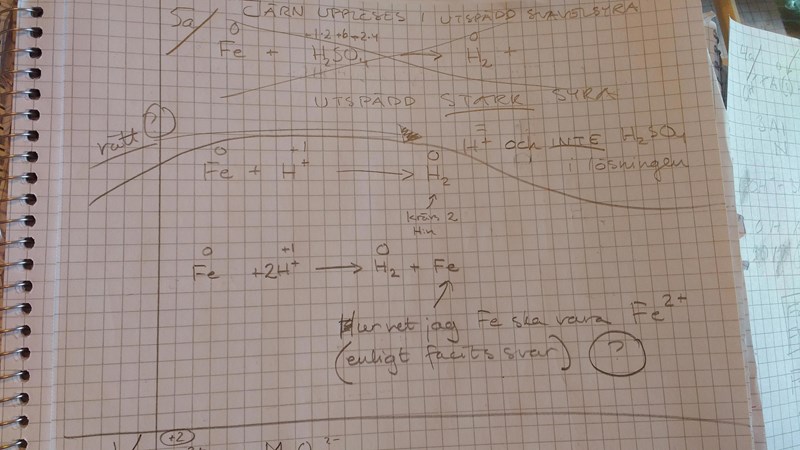 5a/ JÄRN UPPLÖSES I UTSPÄDD SVAVELSYRA
0 +1·2 +6 -2·4 0
Fe + H₂SO₄ → H₂ +
UTSPÄDD STARK SYRA
rätt ?
= H⁺ och INTE H₂SO₄
i lösningen
0 +1 0
Fe + H⁺ → H₂
↑
kräv 2
H:n
0 +1 0
Fe +2H⁺ → H₂ + Fe
Hur vet jag Fe ska vara Fe²⁺
(enligt facits svar) ?
+2